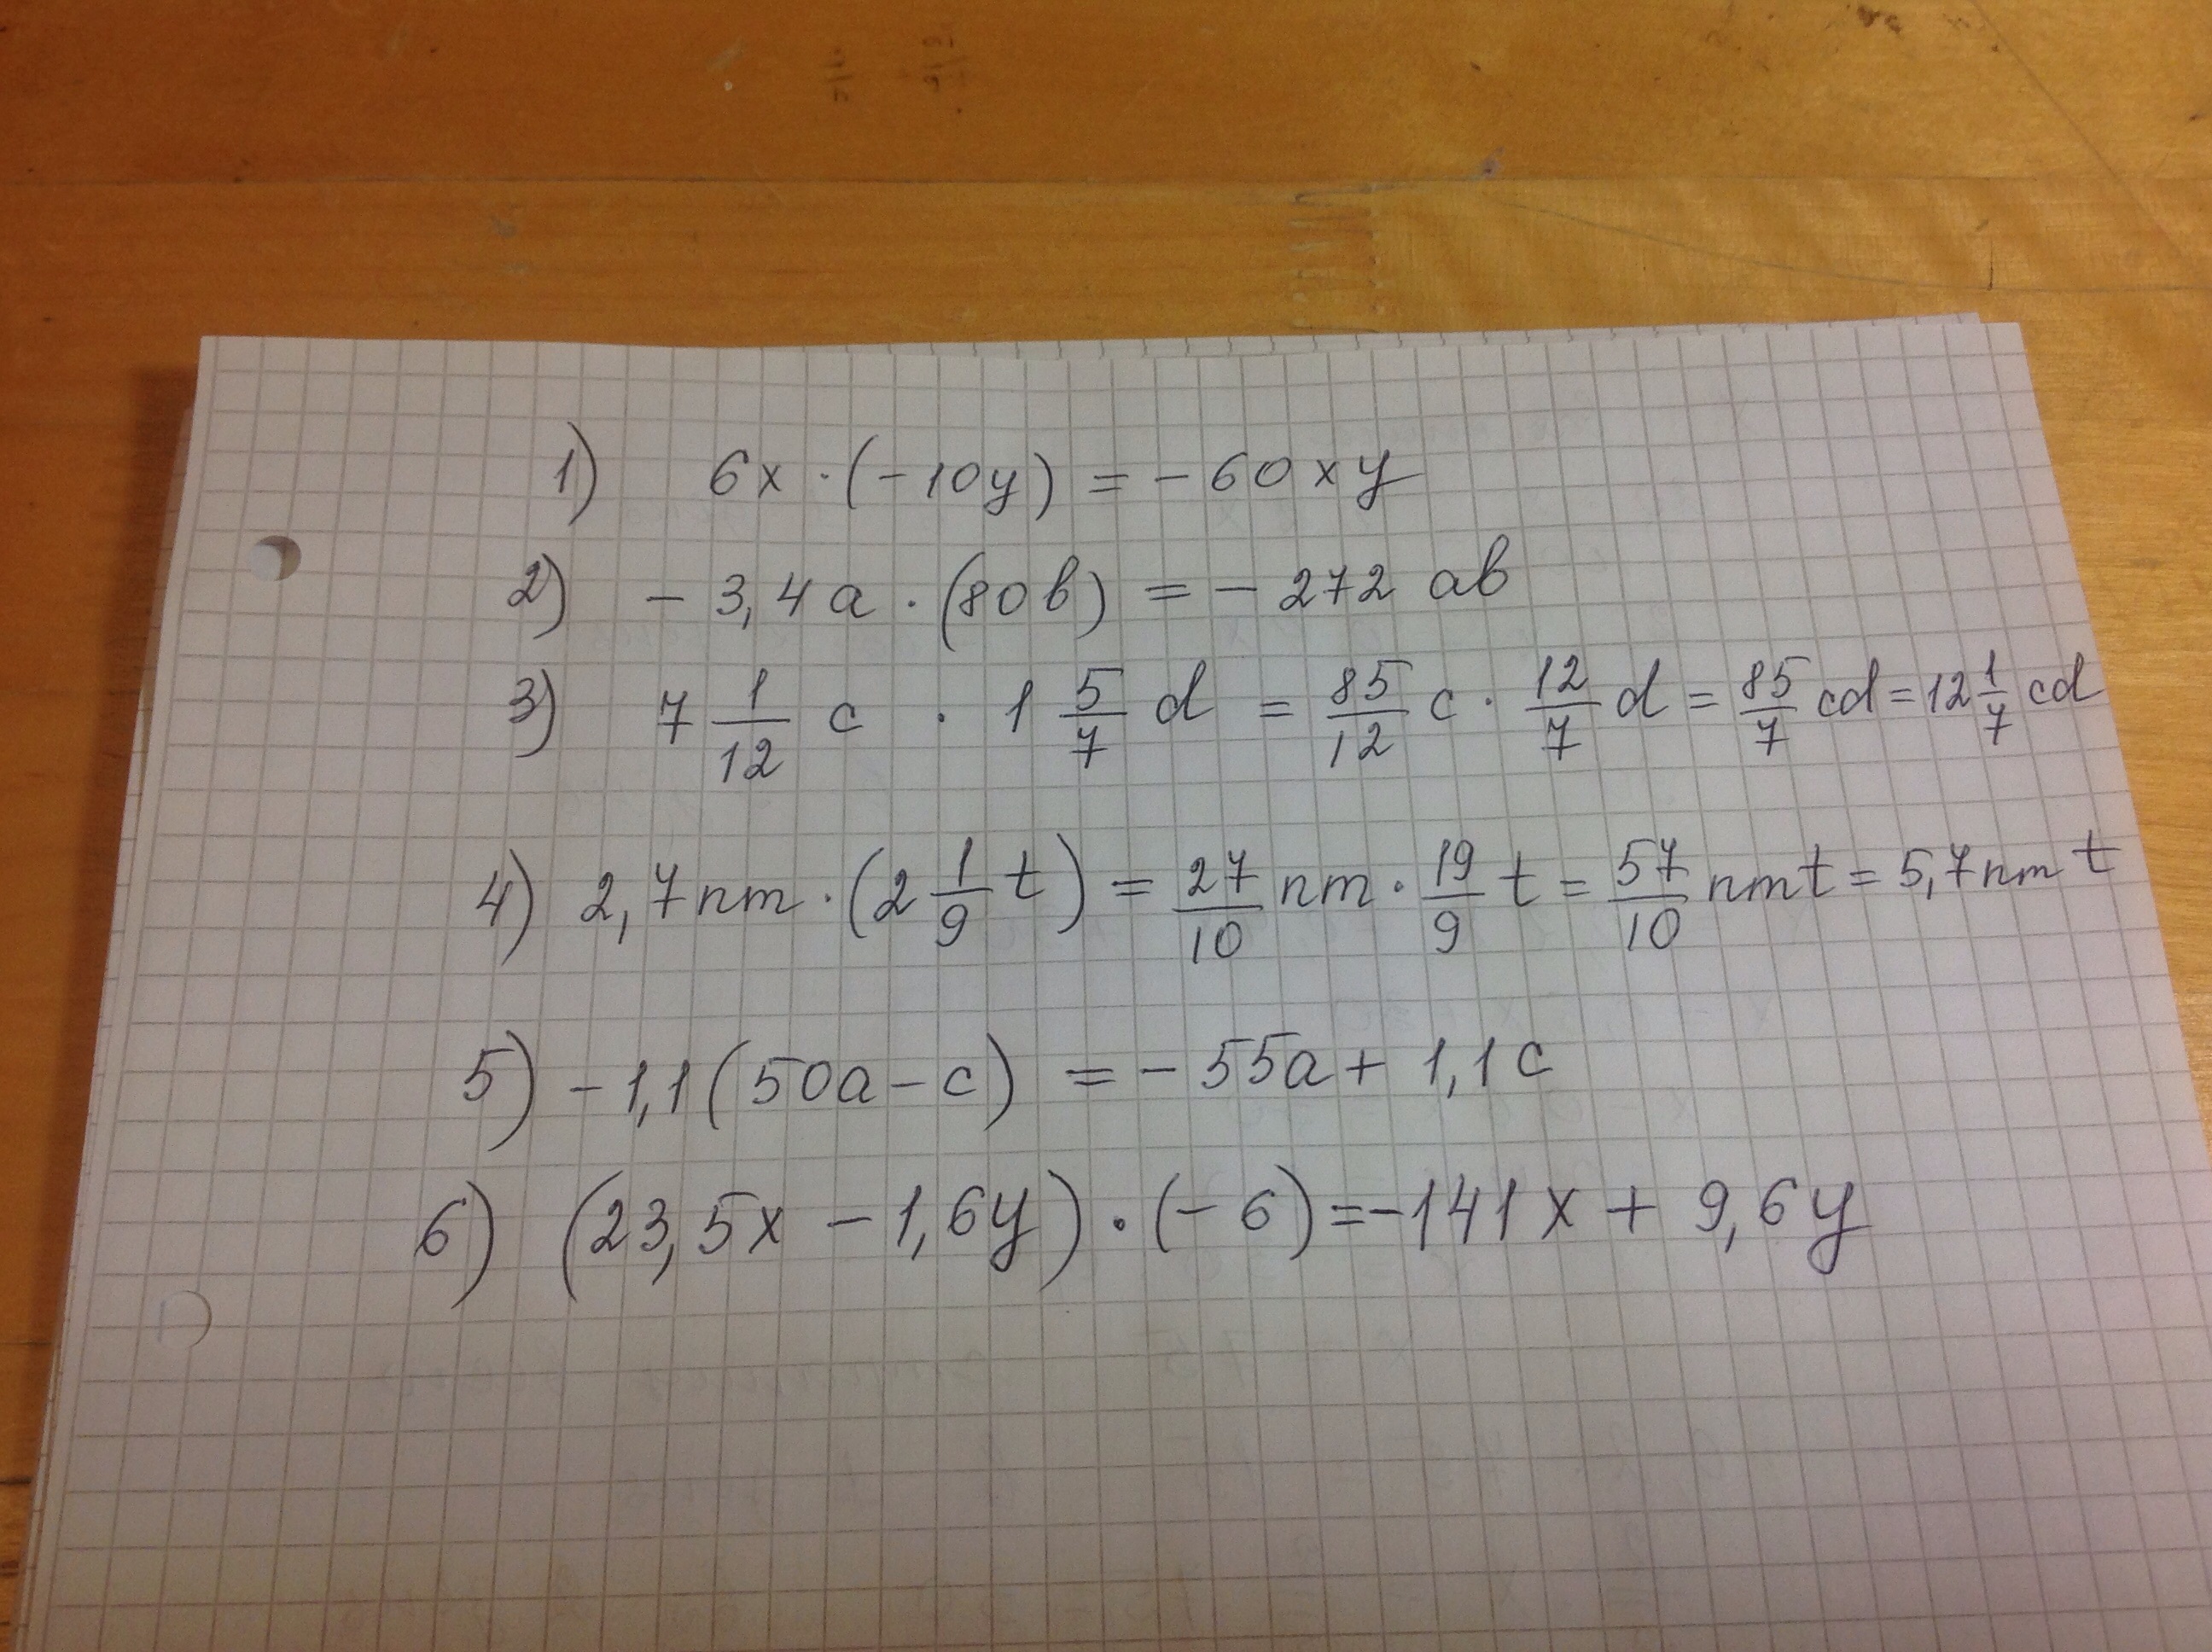 1) 6x · (-10y) = -60xy
2) -3,4a · (80b) = -272 ab
3) 7 1/12 c · 1 5/7 d = 85/12 c · 12/7 d = 85/7 cd = 12 1/7 cd
4) 2,7nm · (2 1/9 t) = 27/10 nm · 19/9 t = 57/10 nmt = 5,7nmt
5) -1,1(50a-c) = -55a + 1,1c
6) (23,5x - 1,6y) · (-6) = -141x + 9,6y